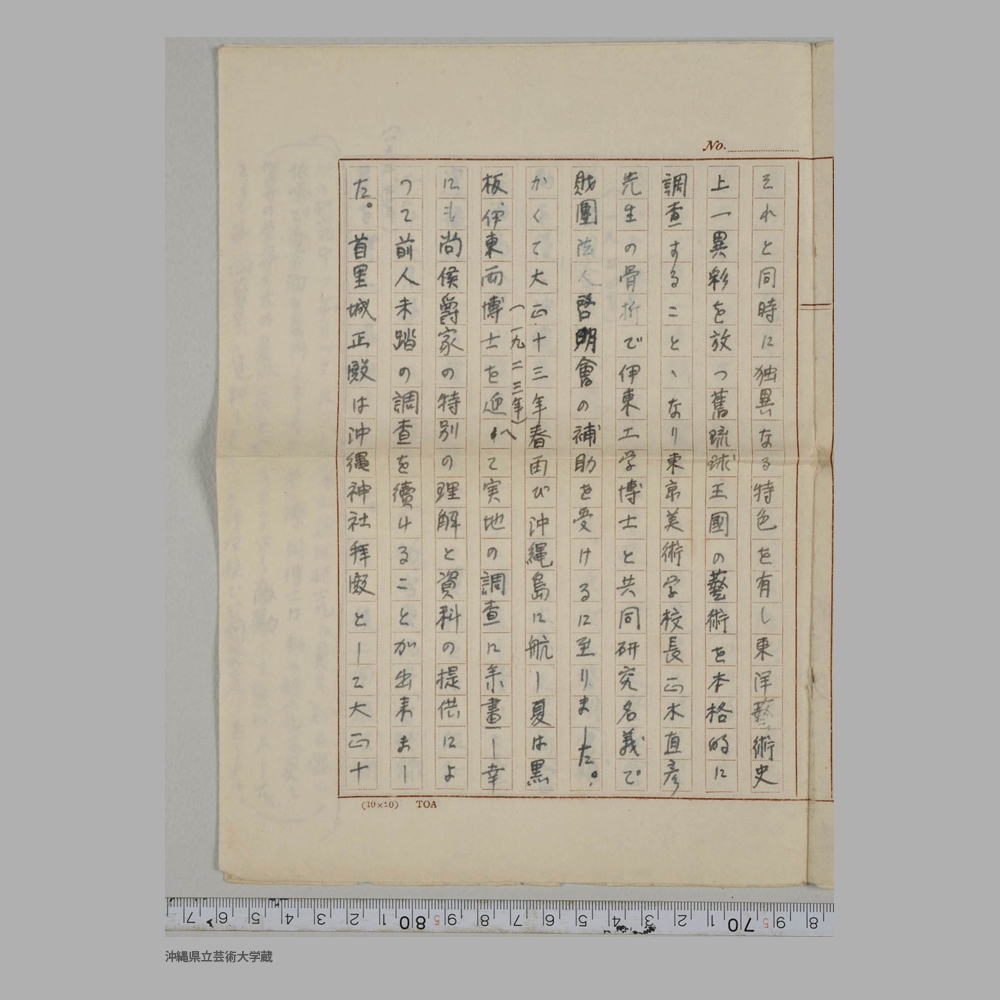 No.
それと同時に独異なる特色を有し東洋藝術史
上一異彩を放つ舊琉球王國の藝術を本格的に
調査することゝなり東京美術学校長正木直彦
先生の骨折で伊東工学博士と共同研究名義で
財團法人啓明會の補助を受けるに至りました。
かくて大正十三年春再び沖縄島に航し夏は黒
(一九二三年)
板、伊東両博士を迎へて実地の調査に参畫し幸
にも尚侯爵家の特別の理解と資料の提供によ
つて前人未踏の調査を續けることが出来まし
た。首里城正殿は沖縄神社拜殿として大正十
(10×20) TOA
7 6 5 4 3 2 1 80 9 8 7 6 5 4 3 2 1 70 9 8
沖縄県立芸術大学蔵